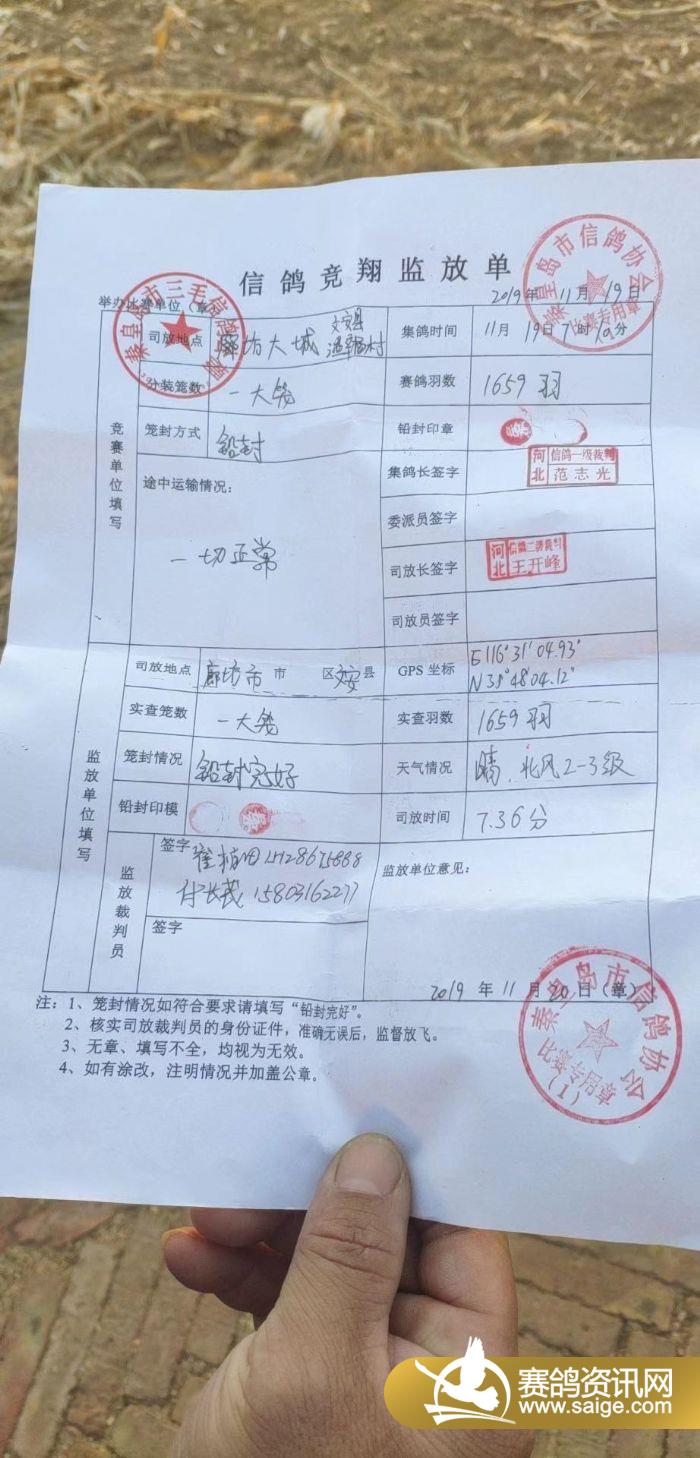 信鸽竞翔监放单
举办比赛单位（章）
2019年 11月 19日
秦皇岛市信鸽协会
比赛专用章
秦皇岛市三毛信鸽
竞赛单位填写
司放地点 廊坊大城 文安县
集鸽时间 11月 19日 7时 10分
分装笼数 一大笼
赛鸽羽数 1659羽
笼封方式 铅封
铅封印章
途中运输情况：
一切正常
集鸽长签字 河北 信鸽一级裁判 范志光
委派员签字
司放长签字 河北 信鸽二级裁判 王开峰
司放员签字
监放单位填写
司放地点 廊坊市 市 区 文安 县
GPS 坐标 E116°31′04.93″
N38°48′04.12″
实查笼数 一大笼
实查羽数 1659羽
笼封情况 铅封完好
天气情况 晴，北风2-3级
铅封印模
司放时间 7.36分
监放裁判员
签字
付长茂 15803162277
签字
监放单位意见：
2019 年 11 月 20 日（章）
秦皇岛市信鸽协会
比赛专用章
（1）
注：1、笼封情况如符合要求请填写“铅封完好”。
2、核实司放裁判员的身份证件，准确无误后，监督放飞。
3、无章、填写不全，均视为无效。
4、如有涂改，注明情况并加盖公章。
赛鸽资讯网
www.saige.com